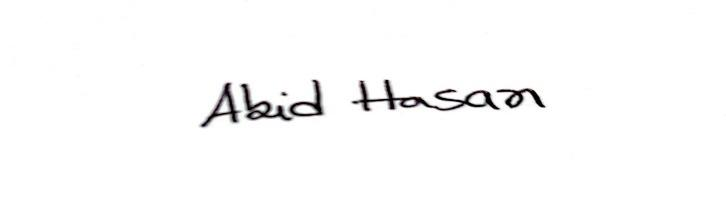 Abid Hasan